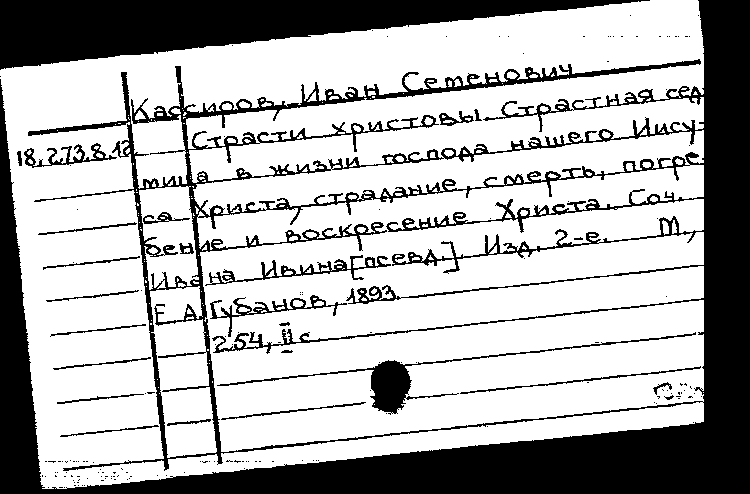 Кассиров, Иван Семенович
18.273.8.12. Страсти христовы. Страстная сед-
мица в жизни господа нашего Иису-
са Христа, страдание, смерть, погре-
бение и воскресение Христа. Соч.
Ивана Ивина [псевд.]. Изд. 2-е. М.,
Е. А. Губанов, 1893.
254, II с